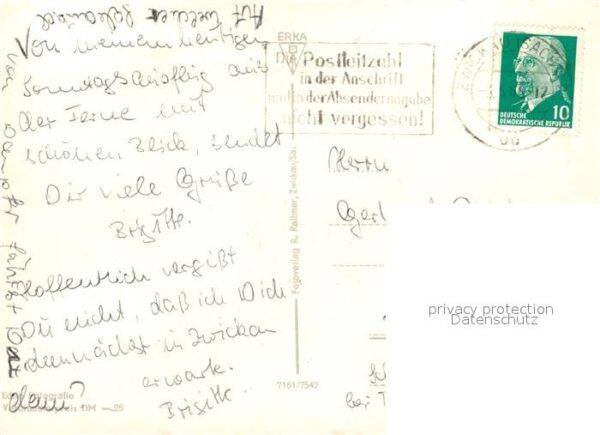 Auf welcher
Von meinem heutigen
Sonntagsausflug aus
der Ferne mit
schönem Blick, sendet
Dir viele Grüße
Brigitte.
Hoffentlich vergißt
Du nicht, daß ich Dich
demnächst in Zwickau
erwarte.
Brigitte.
von Dampfer fährt
dann?
Echte Fotografie
Verbraucherpreis DM —.25
ERKA
Fotoverlag R. Kallmer, Zwickau/Sa.
7161/7542
Die Postleitzahl
in der Anschrift
und in der Absenderangabe
nicht vergessen!
ZWICKAU
DEUTSCHE
DEMOKRATISCHE REPUBLIK
10
Herrn
bei
privacy protection
Datenschutz